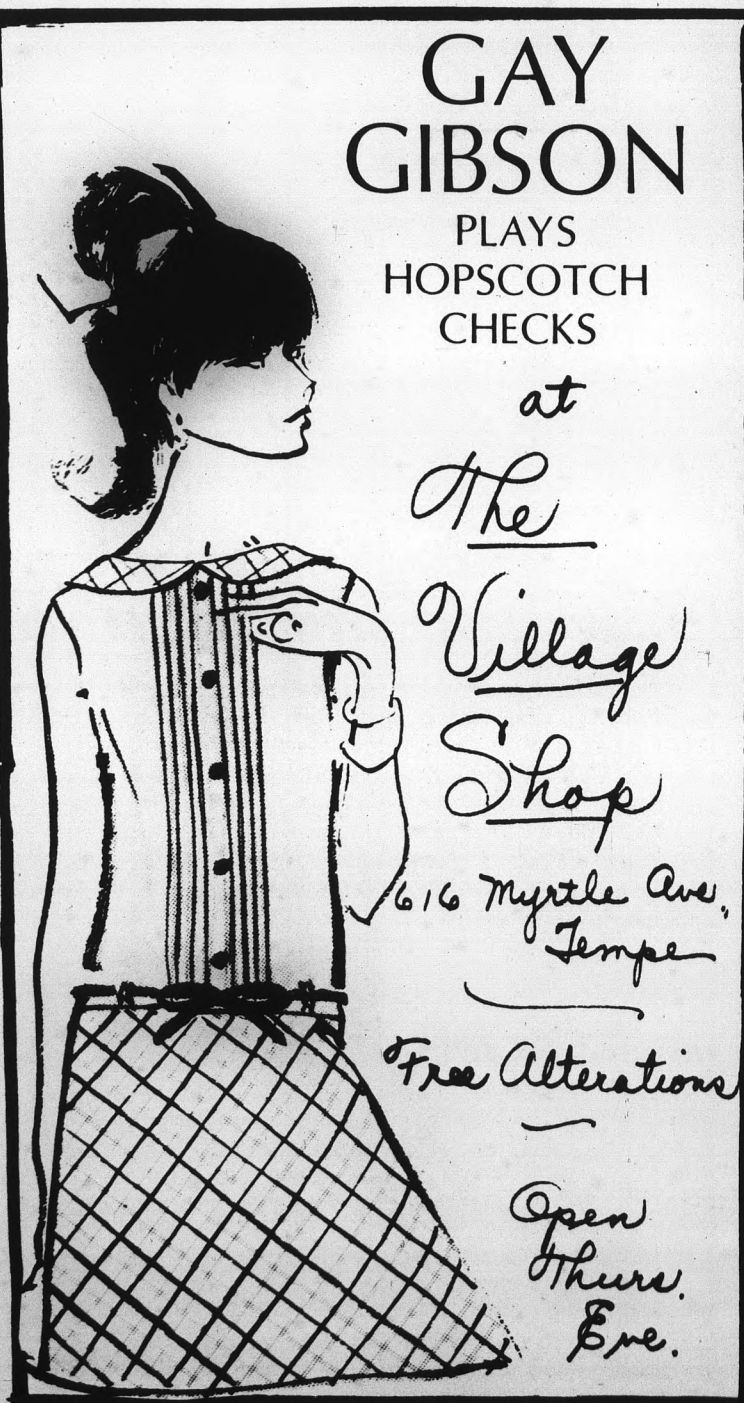 GAY
GIBSON
PLAYS
HOPSCOTCH
CHECKS
at
The
Village
Shop
616 Myrtle Ave.,
Tempe
Free Alterations
Open
Thurs.
Eve.